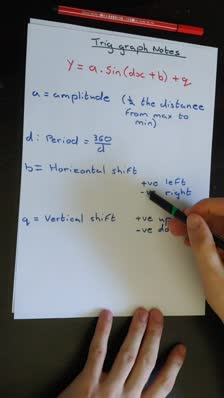 Trig graph Notes
Y = a.sin(dx + b) + q
a = amplitude (½ the distance
from max to
min)
d: Period = 360/d
b = Horizontal shift
+ve left
-ve right
q = Vertical shift +ve
-ve